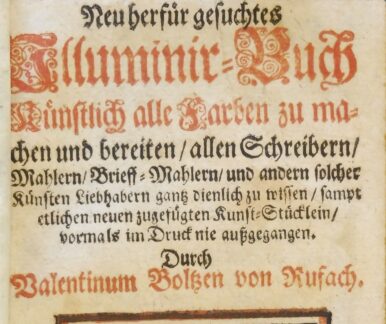 Neu herfür gesuchtes
Illuminir-Buch
Künstlich alle Farben zu ma-
chen und bereiten/ allen Schreibern/
Mahlern/ Brieff-Mahlern/ und andern solcher
Künsten Liebhabern gantz dienlich zu wissen/ sampt
etlichen neuen zugefügten Kunst-Stücklein/
vormals im Druck nie außgegangen.
Durch
Valentinum Boltzen von Rufach.